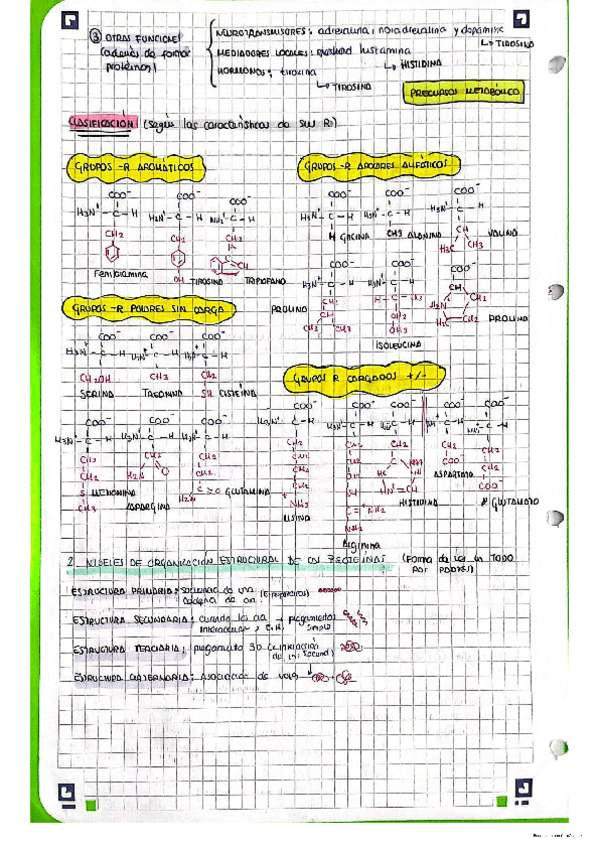 ③ OTRAS FUNCIONES
(además de formar
proteínas)
NEUROTRANSMISORES: adrenalina, noradrenalina y dopamina
↳ TIROSINA
MEDIADORES LOCALES: histamina
↳ HISTIDINA
HORMONAS: tiroxina
↳ TIROSINA
PRECURSOR METABÓLICO
CLASIFICACIÓN (según las características de sus R)
GRUPOS -R AROMÁTICOS
COO⁻ COO⁻ COO⁻
H₃N⁺-C-H H₃N⁺-C-H NH₃⁺-C-H
CH₂ CH₂ CH₂
CH
OH
Fenilalanina TIROSINA TRIPTOFANO
GRUPOS -R APOLARES ALIFÁTICOS
COO⁻ COO⁻ COO⁻
H₃N⁺-C-H H₃N⁺-C-H H₃N⁺-C-H
H GLICINA CH3 ALANINA CH VALINA
H₃C CH₃
COO⁻ COO⁻ COO⁻
H₃N⁺-C-H H₃N⁺-C-H CH
CH₂ H-C-CH₃ H₂N CH₂
CH CH₂ H₂C-CH₂
CH₃ CH₃ CH₃
PROLINO ISOLEUCINA PROLINA
GRUPOS -R POLARES SIN CARGA
COO⁻ COO⁻ COO⁻
H₃N⁺-C-H H₃N⁺-C-H H₃N⁺-C-H
CH₂OH CH₃ SH
SERINA TREONINA CISTEÍNA
COO⁻ COO⁻ COO⁻
H₃N⁺-C-H H₃N⁺-C-H H₃N⁺-C-H
CH₂ CH₂ CH₂
CH₂ H₂N O CH₂
S METIONINA H₂N C=O GLUTAMINA
CH₃ ASPARGINA
GRUPOS R CARGADOS +/-
COO⁻ COO⁻ COO⁻ COO⁻ COO⁻
H₃N⁺-C-H H₃N⁺-C-H H₃N⁺-C-H
CH₂ CH₂ CH₂ CH₂ CH₂
CH₂ CH₂ C NH COO⁻ CH₂
CH₂ CH₂ HC ASPARTATO COO⁻
CH₂ NH HN=CH
NH₃⁺ C=NH₂ HISTIDINA GLUTAMATO
LISINA NH₂
Arginina
2. NIVELES DE ORGANIZACIÓN ESTRUCTURAL DE LAS PROTEÍNAS (Forma de
TODO
POR PODRES)
ESTRUCTURA PRIMARIA: secuencia de una
cadena de aa
ESTRUCTURA SECUNDARIA: cuando los aa → plegamientos
interaccionan simple
ESTRUCTURA TERCIARIA: plegamiento 3D (interacción
ESTRUCTURA CUATERNARIA: Asociación de varias